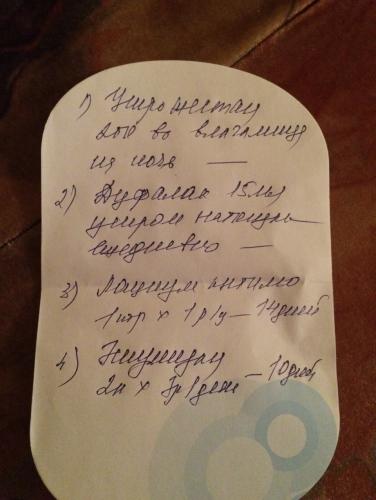 1) Утрожестан
200 во влагалище
на ночь —
2) Дуфалак 15мл
утром натощак
ежедневно —
3) Лациум интимо
1 × 1 р/д — 14дней
4)
2 × 3р/день — 10дней